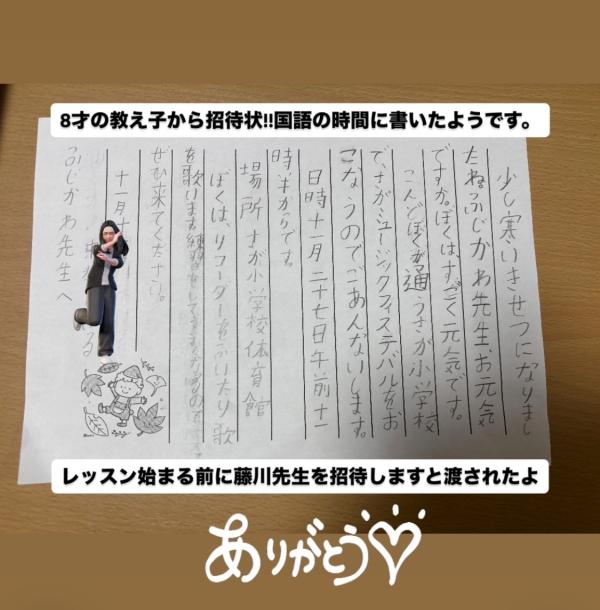 8才の教え子から招待状!!国語の時間に書いたようです。
少し寒いきせつになりまし
たね。ふじかわ先生、お元気
ですか。ぼくは、すごく元気です。
こんどぼくが通うさが小学校
で、さがミュージックフィスティバルをお
こなうのでごあんないします。
日時十一月二十七日午前十一
時半からです。
場所さが小学校体育館
ぼくは、リコーダーをふいたり歌
を歌います。練習をして
ぜひ来てください。
十一月十
ふじかわ先生へ
レッスン始まる前に藤川先生を招待しますと渡されたよ
ありがとう♡